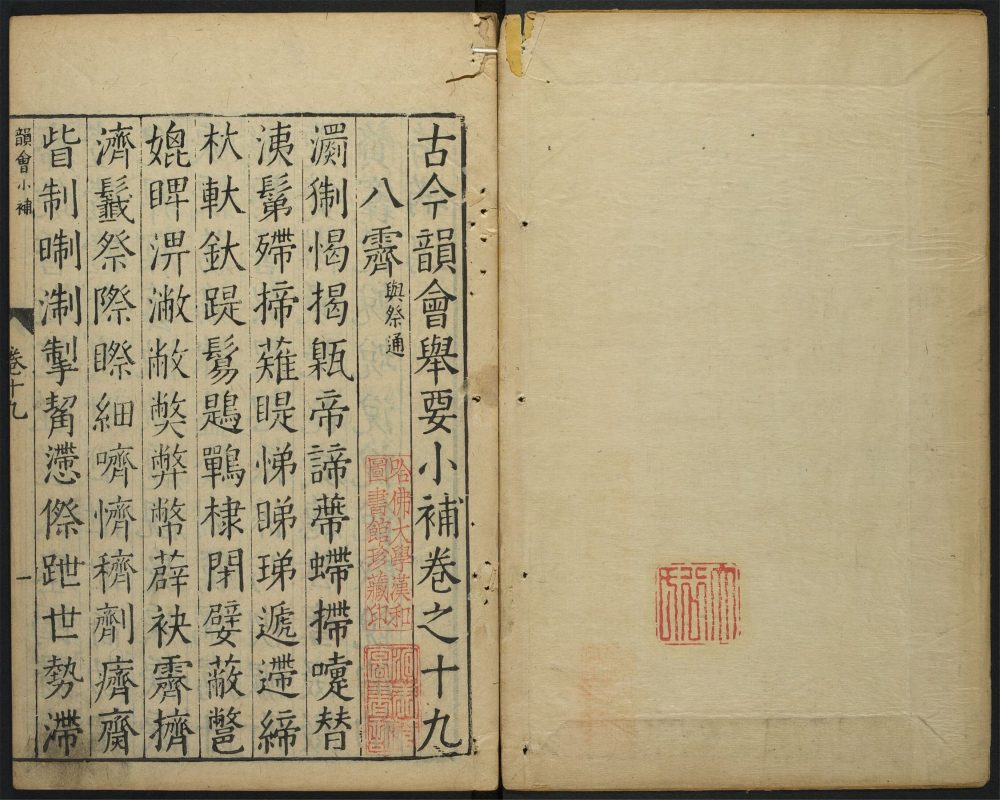 古今韻會舉要小補卷之十九
八霽與祭通
瀱猘愒揭甈帝諦蔕螮摕嚏替
洟鬀殢揥薙睼悌睇珶遞遰締
杕軑釱踶鬄題鷤棣閉嬖蔽鄨
媲睥淠潎敝獘弊幣薜袂霽擠
濟䰏祭際瞭細嚌懠穧劑癠齌
眥制晣淛掣㡜懘傺跇世勢滯
韻會小補
卷十九
一
哈佛大學漢和
圖書館珍藏印